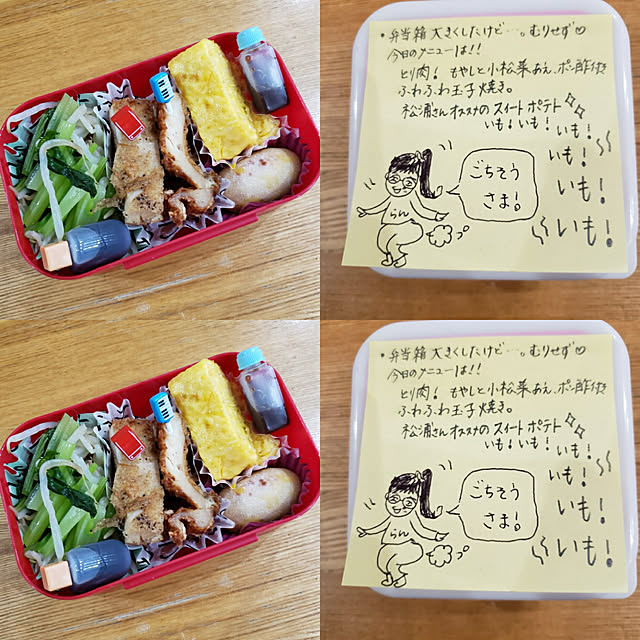 ・弁当箱大きくしたけど…。むりせず♡
今日のメニューは!!
とり肉! もやしと小松菜あえ、ポン酢付き
ふわふわ玉子焼き。
松浦さんオススメの スイートポテト
いも!いも!
いも!
いも!
いも!
いも!
ごちそう
さま!
らん
・弁当箱大きくしたけど…。むりせず♡
今日のメニューは!!
とり肉! もやしと小松菜あえ、ポン酢付き
ふわふわ玉子焼き。
松浦さんオススメの スイートポテト
いも!いも!
いも!
いも!
いも!
いも!
ごちそう
さま!
らん